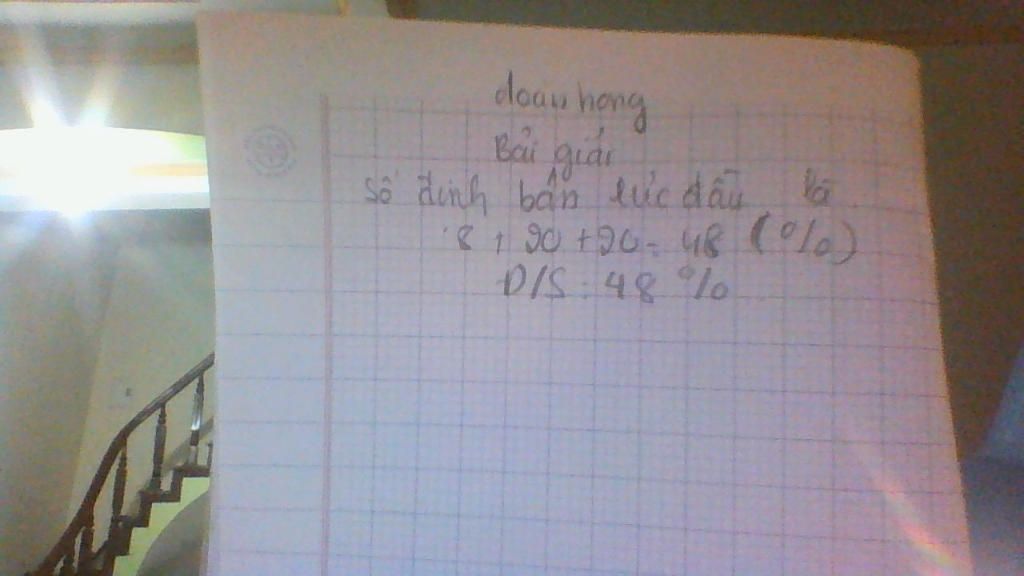 doan hong
Bải giải
số định bán lúc đầu là
8 + 20 + 20 = 48 (%)
Đ/S : 48 %